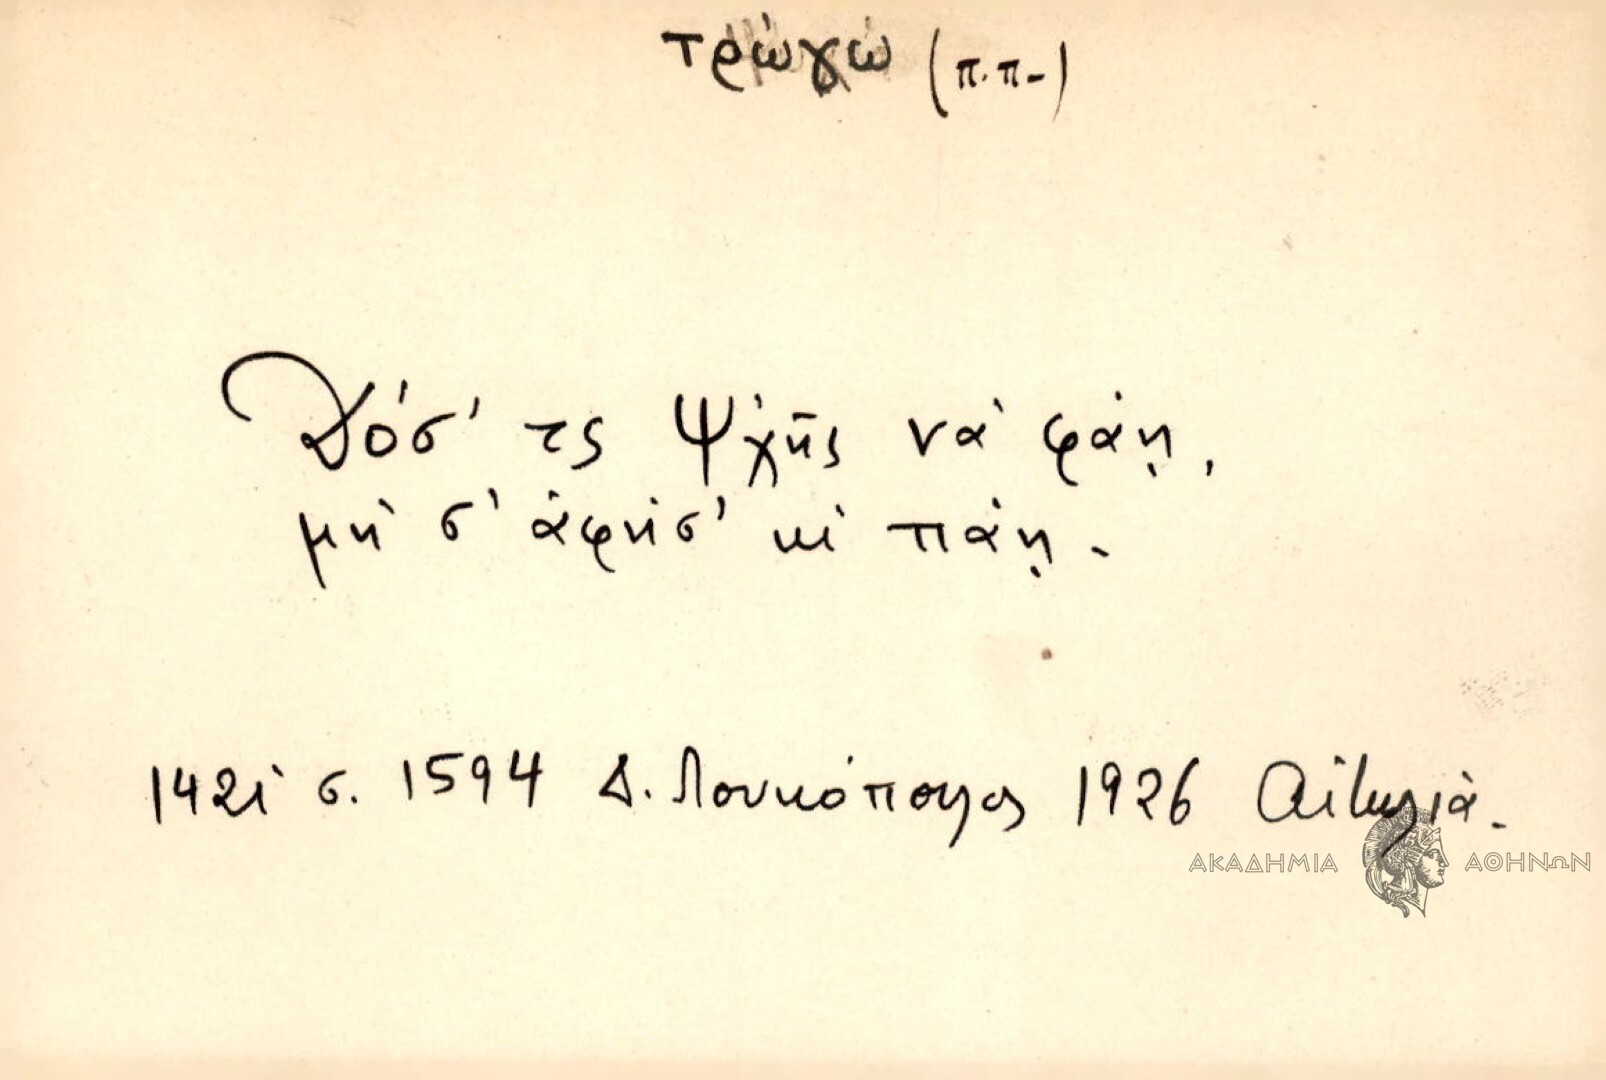 τρώγω (π.π.)
Δόσ' τς Ψχῆς νὰ φάῃ,
μὴ σ' ἀφήσ' κὶ πάῃ.
1421 σ. 1594 Δ. Λουκόπουλος 1926 Αἰτωλία.
ΑΚΑΔΗΜΙΑ ΑΘΗΝΩΝ